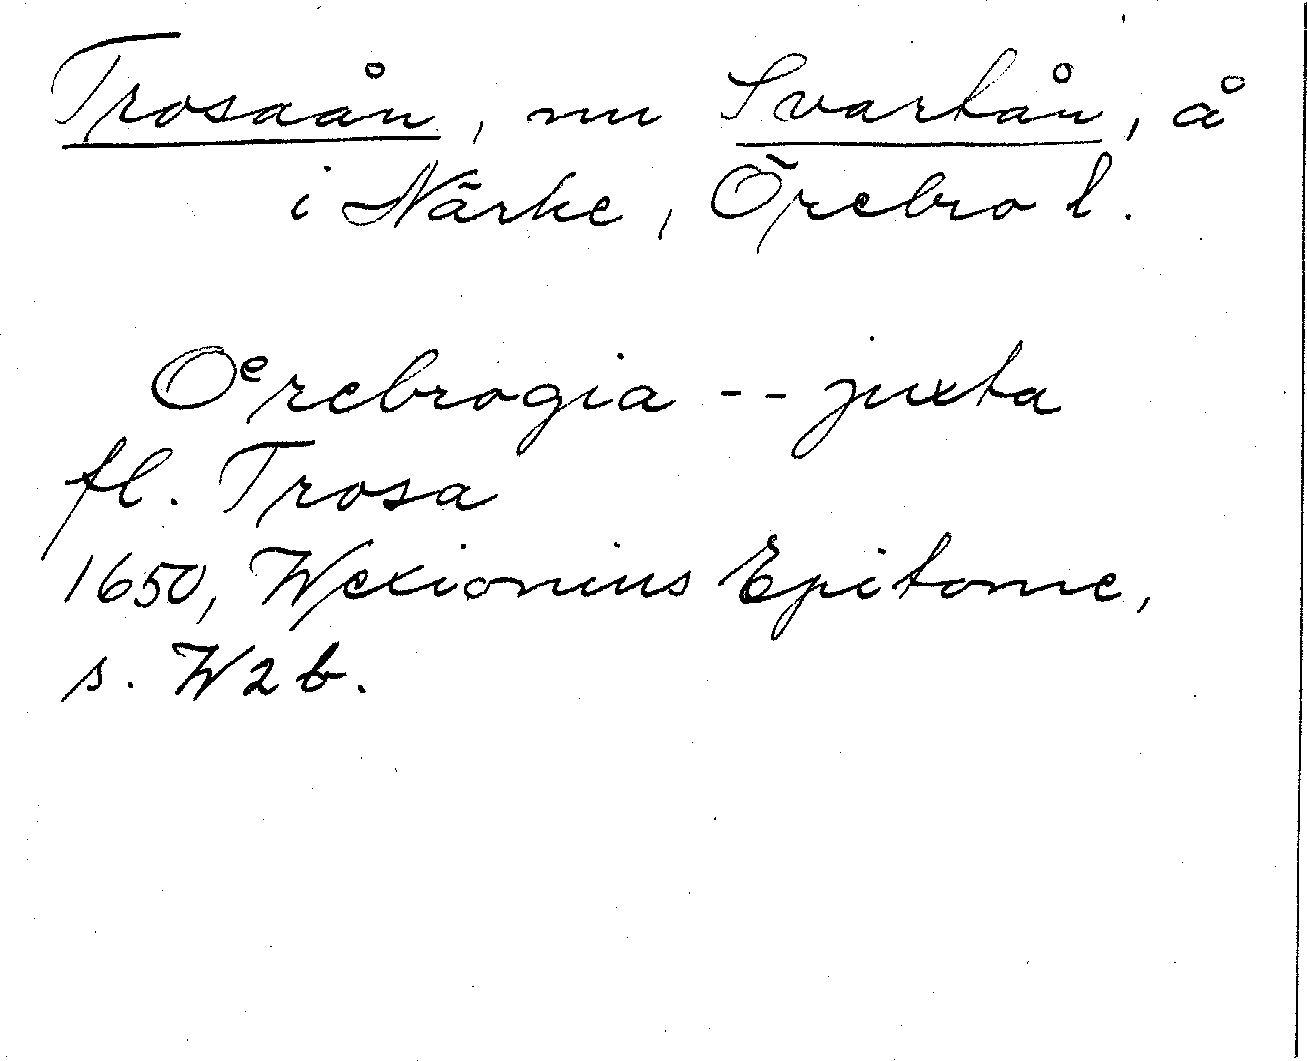 Trosaån, nu Svartån, å
i Närke, Örebro l.
Oerebrogia -- juxta
fl. Trosa
1650, Wexionius Epitome,
s. W2b.